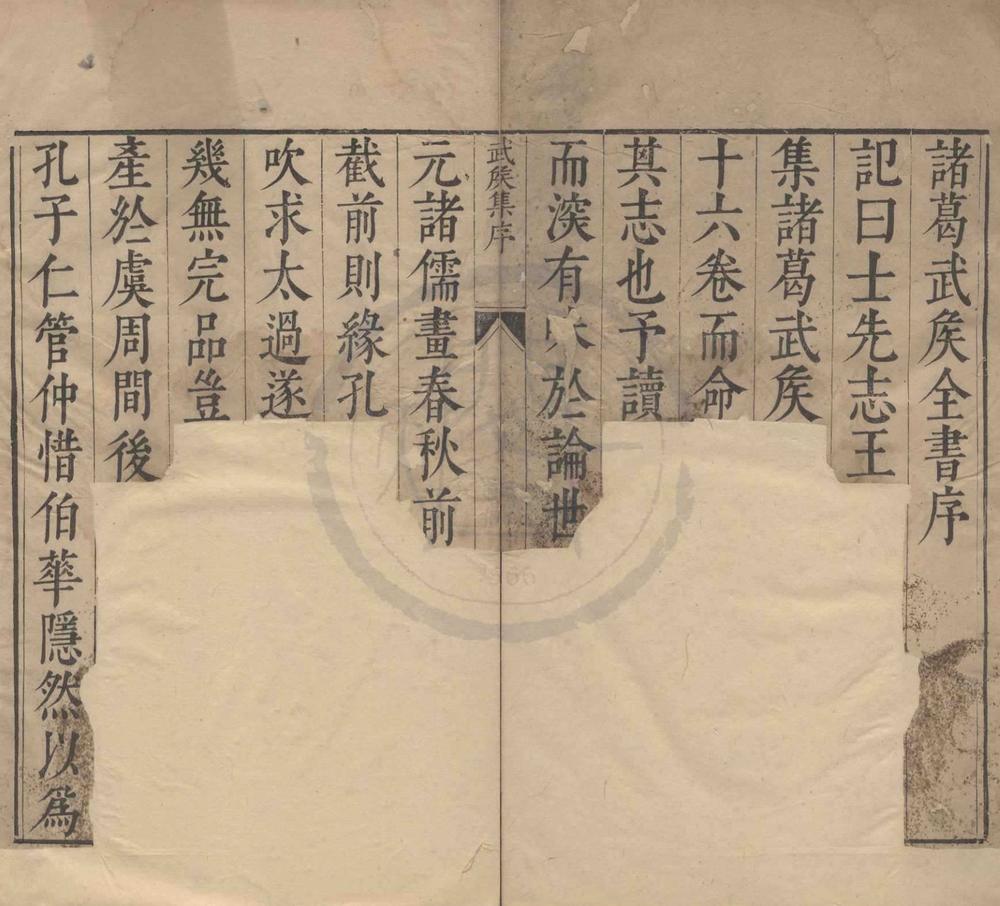 諸葛武矦全書序
記曰士先志王
集諸葛武矦
十六卷而命
其志也予讀
而深有味於論世
武矦集序
元諸儒畫春秋前
截前則緣孔
吹求太過遂
幾無完品豈
產於虞周間後
孔子仁管仲惜伯華隱然以爲